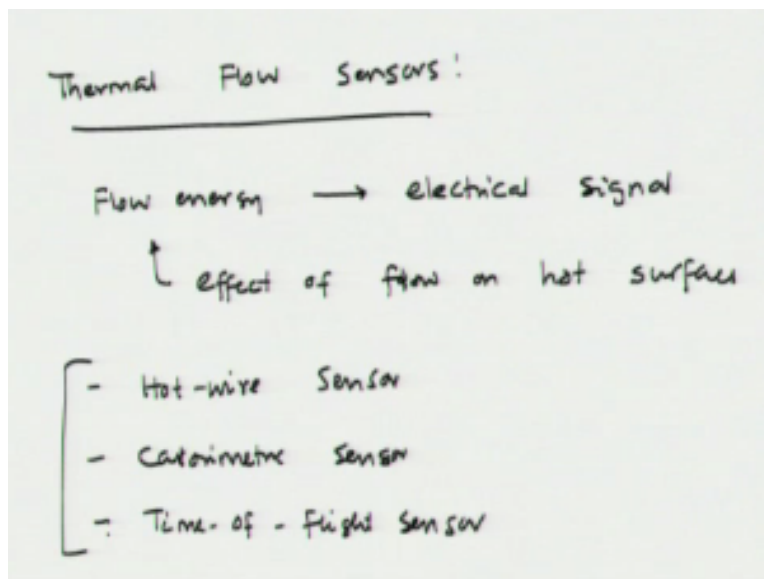 Thermal Flow Sensors:
Flow energy → electrical signal
effect of flow on hot surfaces
- Hot-wire Sensor
- Calorimetric Sensor
- Time-of-flight Sensor